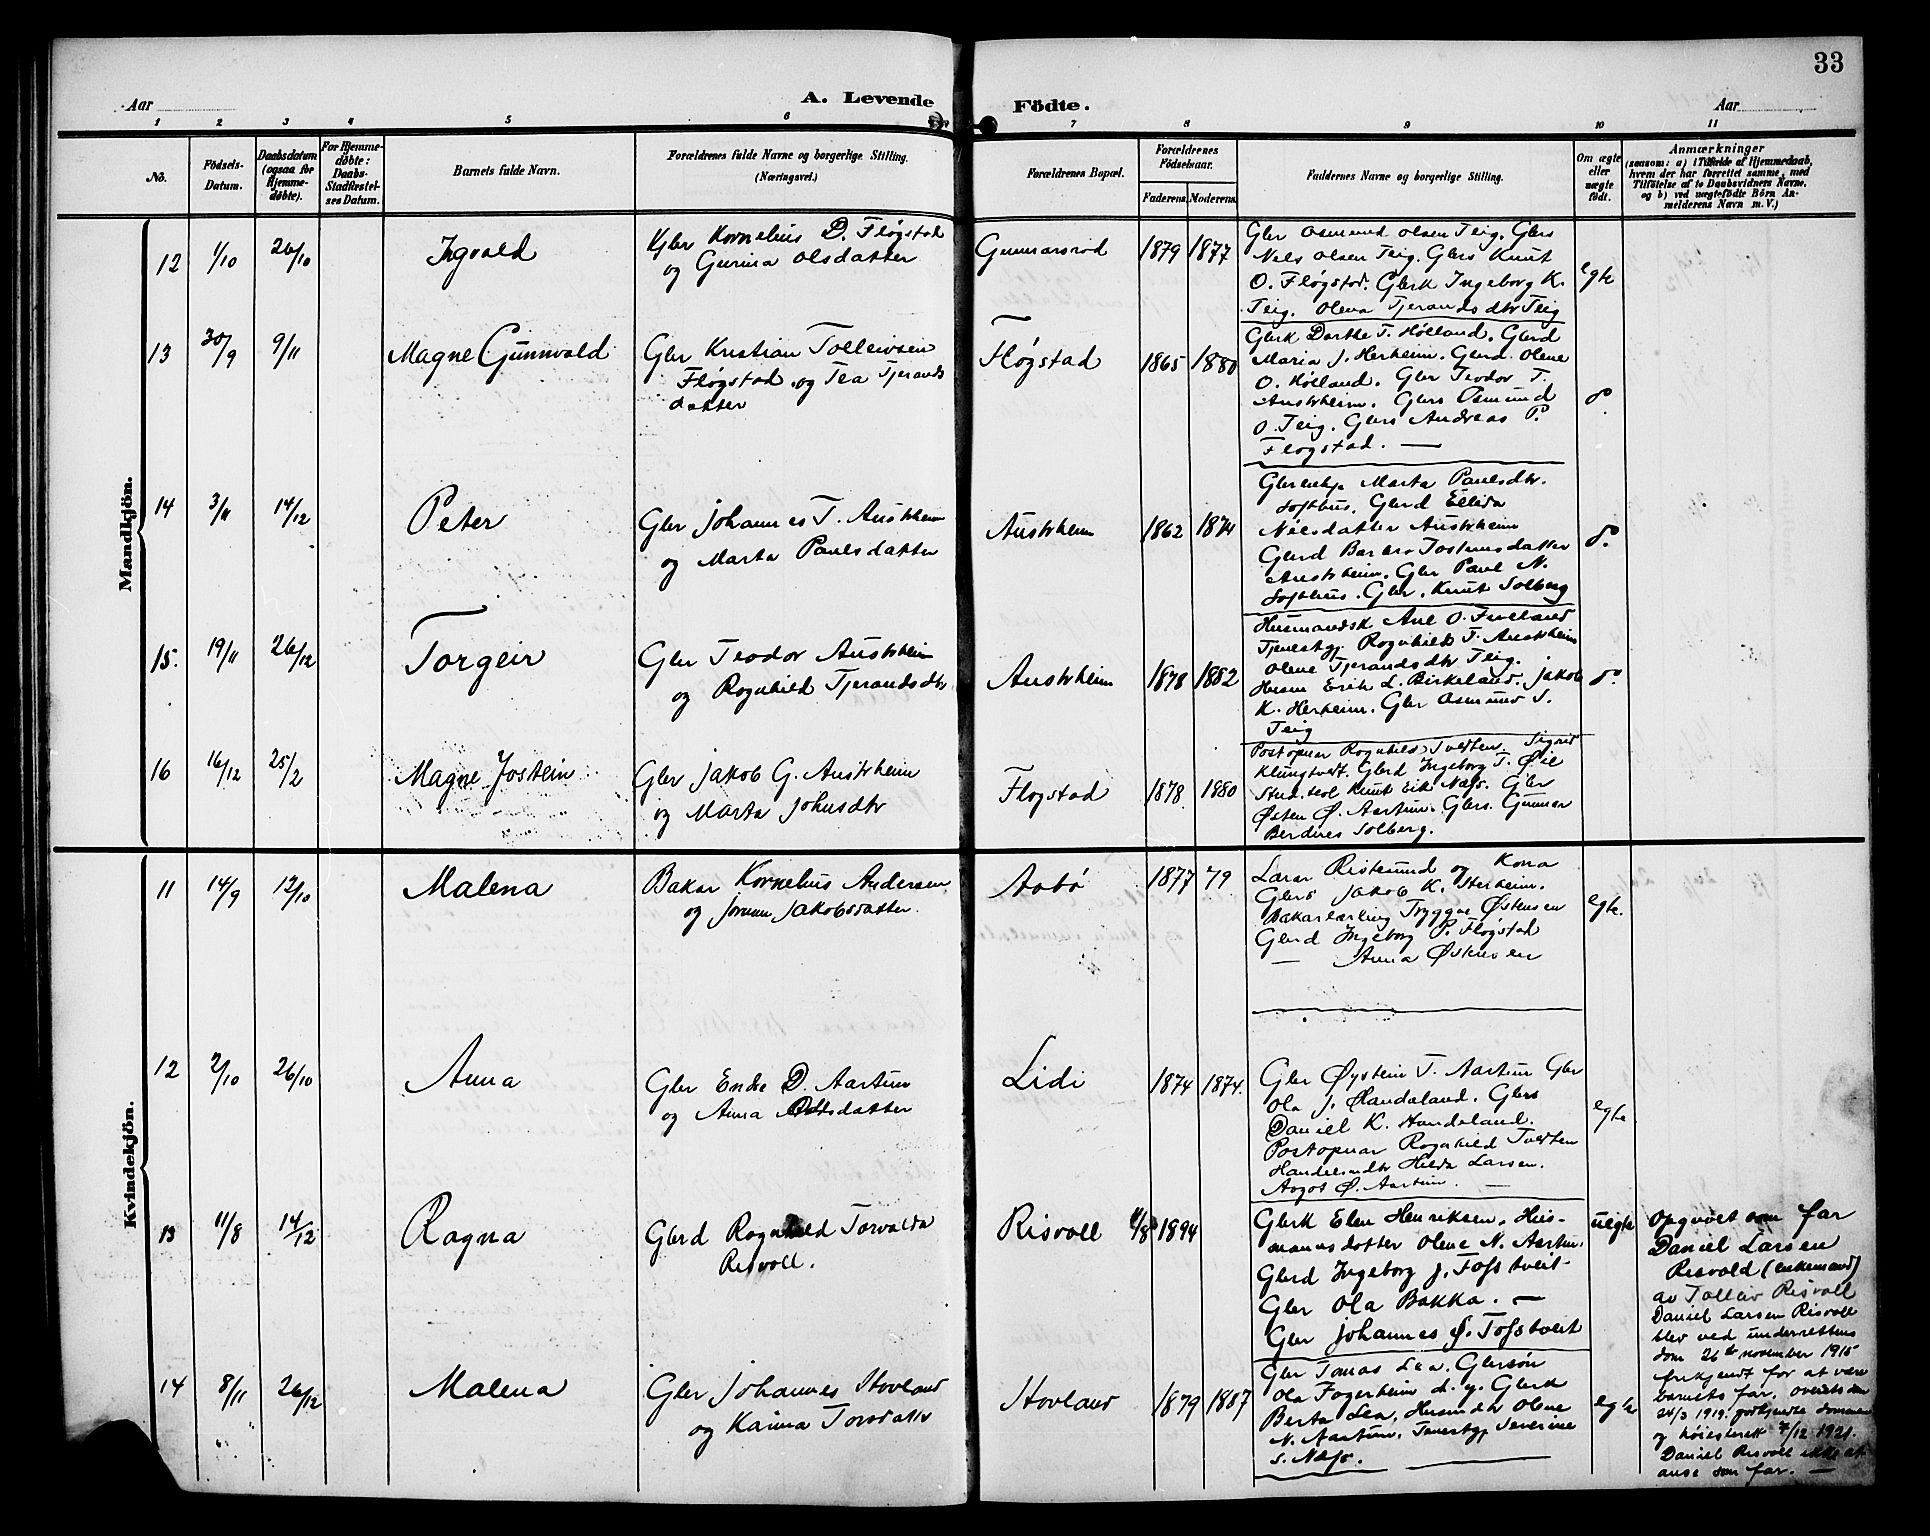 33
Aar
A. Levende Födte.
Aar
1 2 3 4 5 6 7 8 9 10 11
No.
Födsels-
Datum.
Daabsdatum
(ogsaa for
Hjemme-
døbte).
For Hjemme-
døbte:
Daabs-
Stadfæstel-
ses Datum.
Barnets fulde Navn.
Forældrenes fulde Navne og borgerlige Stilling.
(Næringsvei.)
Forældrenes Bopæl.
Forældrenes
Födselsaar.
Faderens. Moderens.
Faddernes Navne og borgerlige Stilling.
Om ægte
eller
uægte
født.
Anmærkninger
(saasom: a) i Tilfælde af Hjemmedaab,
hvem der har forrettet samme, med
Tilføielse af to Daabsvidners Navne,
og b) ved uægtefødte Börn An-
melderens Navn m. V.)
Mandkjön.
12 1/10 26/10 Ingvald
Gbr Kornelius D. Fløgstad
og Gurina Olsdatter
Gunnarsrod 1879 1877
Gbr Osmund Olsen Teig. Gbrs
Nils Olsen Teig. Gbrs Knut
O. Fløgstad. Gbrk Ingeborg K.
Teig. Olena Tjerandsdtr Teig
egte
13 30/9 9/11 Magne Gunnvald
Gbr Kristian Tolleivsen
Fløgstad og Tea Tjerands
datter
Fløgstad 1865 1880
Gbrk Dorthe T. Hølland. Gbrd
Maria J. Herheim. Gbrd Olene
O. Hølland. Gbr Teodor T.
Austrheim. Gbrs Osmund
O. Teig. Gbrs Andreas P.
Fløgstad. —
14 3/11 14/12 Peter
Gbr Johannes T. Austrheim
og Marta Paulsdatter
Austrheim 1862 1874
Marta Paulsdtr.
Softhus. Gbrd Ellida
Nilsdatter Austrheim
Gbrd Barbro Josteinsdatter
Austrheim. Gbr Paul N.
Softhus. Gbr. Knut Solberg
15. 19/11 26/12 Torgeir
Gbr Teodor Austrheim
og Ragnhild Tjerandsdtr
Austrheim 1878 1882
Husmandsk Ane O. Fueland
Tjenestpj Ragnhild T. Austrheim
Olene Tjerandsdtr Teig.
Husm Erik L. Birkeland. Jakob
K. Herheim. Gbr Osmund S.
Teig
16 16/12 25/2 Magne Jostein
Gbr Jakob G. Austrheim
og Marta Johnsdtr
Fløgstad 1878. 1880
Postopnar Ragnhild Tvedten. Sigrid
Klungtvedt. Gbrd Ingeborg T. Øie
Stud. teol Knut Eik Næss. Gbr
Østen Ø. Aartun. Gbrs. Gunnar
Berdines Solberg.
Kvindekjön.
11 14/9 12/10 Malena
Bakar Kornelius Andersen
og Jorunn Jakobsdatter.
Aabø 1877 79
Lærar Ristesund og Kona
Gbrs Jakob K. Herheim.
Bakarlærling Tryggve Østensen
Gbrd Ingeborg P. Fløgstad
— Anna Østensen
egte.
12 2/10 26/10 Anna
Gbr Endre D. Aartun
og Anna Oddsdatter
Lidi 1874 1874.
Gbr Øystein T. Aartun Gbr
Ola J. Handeland. Gbrs
Daniel K. Handeland.
Postopnar Ragnhild Tvedten
Handelsmdtr Hilda Larsen.
Aagot Ø. Aartun. —
egte
13 11/8 14/12 Ragna
Gbrd Ragnhild Torvalda
Risvoll.
Risvoll 1894
Gbrk Elen Henriksen, Hus-
mannsdotter Olene N. Aartun.
Gbrd Ingeborg J. Tofstveit
Gbr Ola Bakka. —
Gbr Johannes Ø. Tofstveit
uegte
Opgivet som far
Daniel Larsen
Risvold (enkemand)
av Tolleiv Risvoll
Daniel Larsen Risvoll
blev ved underrettens
dom 26de november 1915
frikjendt for at være
barnets far, overretsdom
24/3 1919. godkjendte dommen
og høiesterett 7/12 1921.
Daniel Risvoll ikke at
anse som far. —
14 8/11 26/12 Malena
Gbr Johannes Hovland
og Kaima Torsdatter
Hovland 1879 1887
Gbr Tomas Lea. Gbrsøn
Ola Fagerheim d.y. Gbrk
Berta Lea, Husmdtr Olene
N. Aartun. Tenestgj Severine
S. Næss.
egte